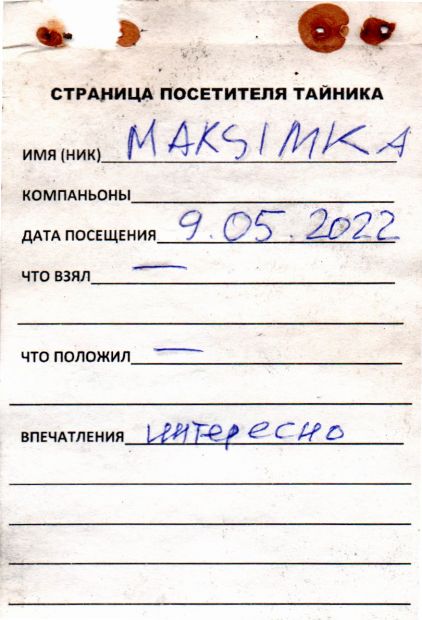 СТРАНИЦА ПОСЕТИТЕЛЯ ТАЙНИКА
ИМЯ (НИК) MAKSIMKA
КОМПАНЬОНЫ
ДАТА ПОСЕЩЕНИЯ 9.05.2022
ЧТО ВЗЯЛ —
ЧТО ПОЛОЖИЛ —
ВПЕЧАТЛЕНИЯ интересно